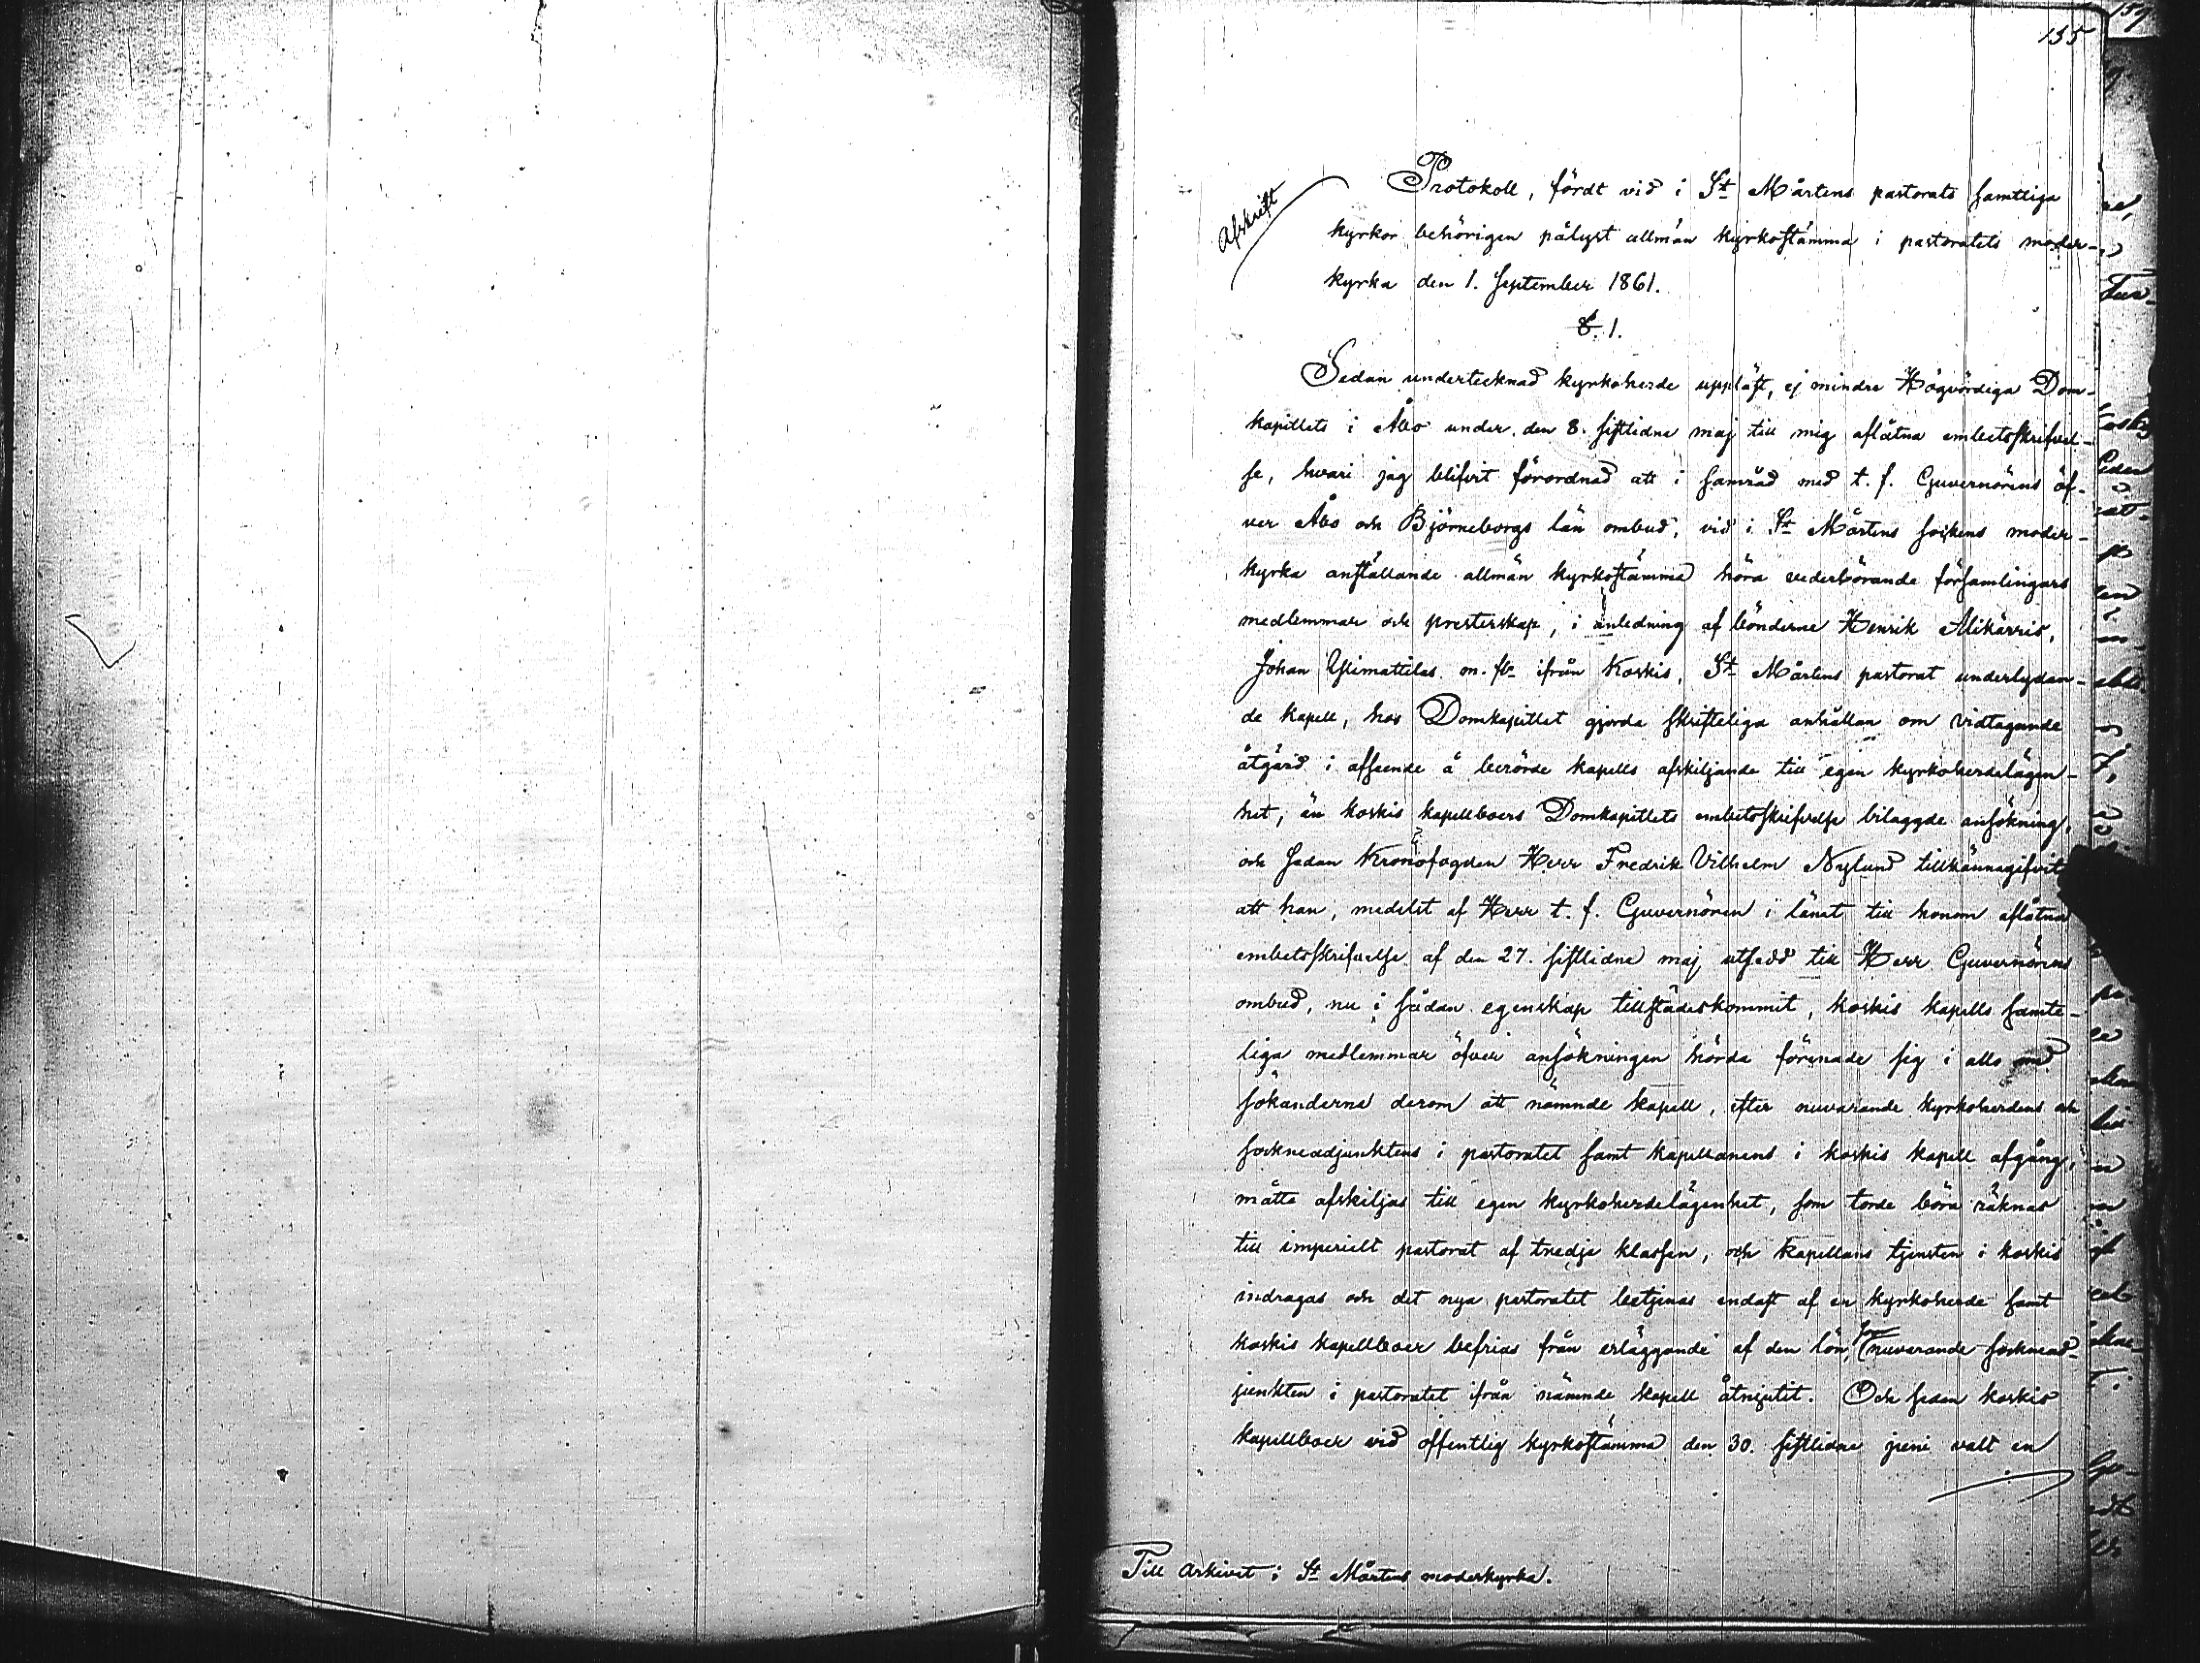 155
Afskrift
Protokoll, fördt vid i St Mårtens pastorats samtliga
kyrkor behörigen pålyst allmän kyrkostämma i pastoratets moder-
kyrka den 1. September 1861.
§. 1.
Sedan undertecknad kyrkoherde uppläst, ej mindre Högvördiga Dom-
kapitlets i Åbo under den 8. sistlidne maj till mig aflåtna embetsskrifvel-
se, hvari jag blifvit förordnad att i samråd med t. f. Guvernörens öf-
ver Åbo och Björneborgs län ombud, vid i St Mårtens sockens moder-
kyrka anställande allmän kyrkostämma höra vederbörande församlingars
medlemmar och presterskap, i anledning af bönderne Henrik Alikärris,
Johan Ylimattilas m. fl. ifrån Koskis, St Mårtens pastorat underlydan-
de kapell, hos Domkapitlet gjorda skrifteliga anhållan om vidtagande
åtgärd i afseende å berörde kapells afskiljande till egen kyrkoherdelägen-
het, än koskis kapellboers Domkapitlets embetsskrifvelse bilaggde ansökning,
och sedan Kronofogden Herr Fredrik Vilhelm Nylund tillkännagifvit
att han, medelst af Herr t. f. Guvernören i länet till honom aflåtna
embetsskrifvelse af den 27. sistlidne maj utsedd till Herr Guvernörens
ombud, nu i sådan egenskap tillstädeskommit, koskis kapells samte-
liga medlemmar öfver ansökningen hörda förenade sig i allo med
sökanderne derom att nämnde kapell, efter nuvarande kyrkoherdens och
sockneadjunktens i pastoratet samt kapellanens i koskis kapell afgång,
måtte afskiljas till egen kyrkoherdelägenhet, som torde böra räknas
till imperielt pastorat af tredje klassen, och kapellans tjensten i koskis
indragas och det nya pastoratet betjenas endast af en kyrkoherde samt
koskis kapellboer befrias från erläggande af den lön, nuvarande socknead-
junkten i pastoratet ifrån nämnde kapell åtnjutit. Och sedan koskis
kapellboer vid offentlig kyrkostämma den 30. sistlidne juni valt en
Till Arkivet i St Mårtens moderkyrka.